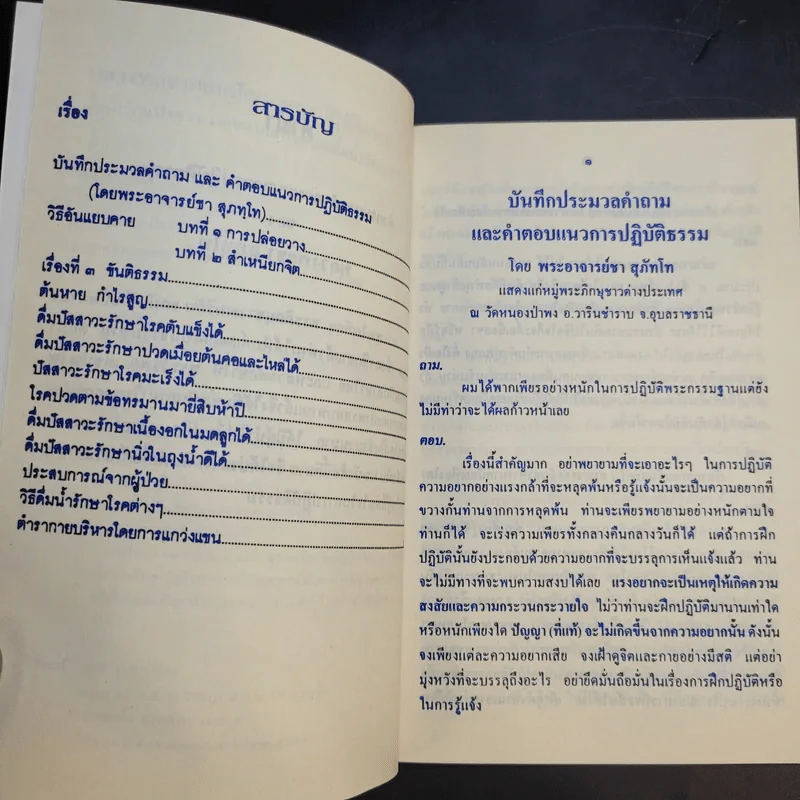 สารบัญ
เรื่อง
บันทึกประมวลคำถาม และ คำตอบแนวการปฏิบัติธรรม
(โดยพระอาจารย์ชา สุภทฺโท)
วิธีอันแยบคาย บทที่ ๑ การปล่อยวาง
บทที่ ๒ สำเหนียกจิต
เรื่องที่ ๓ ขันติธรรม
ต้นหาย กำไรสูญ
ดื่มปัสสาวะรักษาโรคตับแข็งได้
ดื่มปัสสาวะรักษาปวดเมื่อยต้นคอและไหล่ได้
ปัสสาวะรักษาโรคมะเร็งได้
โรคปวดตามข้อทรมานมายี่สิบห้าปี
ดื่มปัสสาวะรักษาเนื้องอกในมดลูกได้
ดื่มปัสสาวะรักษานิ่วในถุงน้ำดีได้
ประสบการณ์จากผู้ป่วย
วิธีดื่มน้ำรักษาโรคต่างๆ
ตำรากายบริหารโดยการแกว่งแขน
๑
บันทึกประมวลคำถาม
และคำตอบแนวการปฏิบัติธรรม
โดย พระอาจารย์ชา สุภัทโท
แสดงแก่หมู่พระภิกษุชาวต่างประเทศ
ณ วัดหนองป่าพง อ.วารินชำราบ จ.อุบลราชธานี
ถาม.
ผมได้พากเพียรอย่างหนักในการปฏิบัติพระกรรมฐานแต่ยัง
ไม่มีท่าว่าจะได้ผลก้าวหน้าเลย
ตอบ.
เรื่องนี้สำคัญมาก อย่าพยายามที่จะเอาอะไรๆ ในการปฏิบัติ
ความอยากอย่างแรงกล้าที่จะหลุดพ้นหรือรู้แจ้งนั้นจะเป็นความอยากที่
ขวางกั้นท่านจากการหลุดพ้น ท่านจะเพียรพยายามอย่างหนักตามใจ
ท่านก็ได้ จะเร่งความเพียรทั้งกลางคืนกลางวันก็ได้ แต่ถ้าการฝึก
ปฏิบัตินั้นยังประกอบด้วยความอยากที่จะบรรลุการเห็นแจ้งแล้ว ท่าน
จะไม่มีทางที่จะพบความสงบได้เลย แรงอยากจะเป็นเหตุให้เกิดความ
สงสัยและความกระวนกระวายใจ ไม่ว่าท่านจะฝึกปฏิบัติมานานเท่าใด
หรือหนักเพียงใด ปัญญา (ที่แท้) จะไม่เกิดขึ้นจากความอยากนั้น ดังนั้น
จงเพียงแต่ละความอยากเสีย จงเฝ้าดูจิตและกายอย่างมีสติ แต่อย่า
มุ่งหวังที่จะบรรลุถึงอะไร อย่ายึดมั่นถือมั่นในเรื่องการฝึกปฏิบัติหรือ
ในการรู้แจ้ง